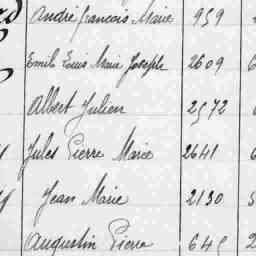 André François Marie 959
Emile Louis Marie Joseph 2609
Albert Julien 2572
Jules Pierre Marie 2641
Jean Marie 2130
Augustin Pierre 645